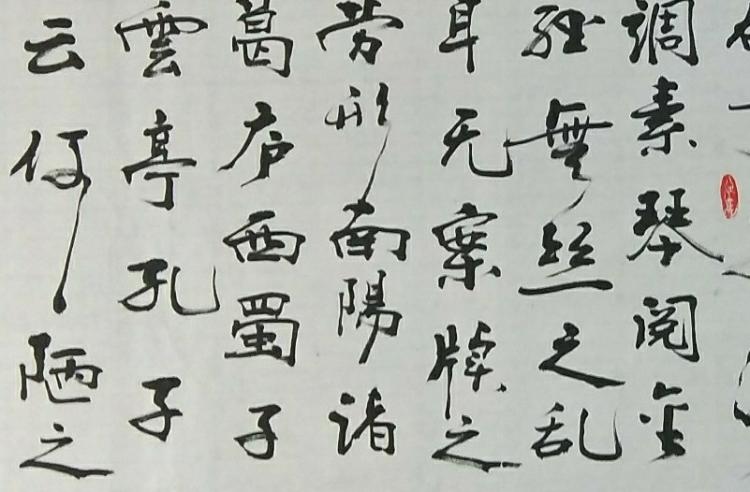 调素琴阅金
经無丝之乱
耳无案牍之
劳形南陽诸
葛庐西蜀子
雲亭孔子
云何陋之